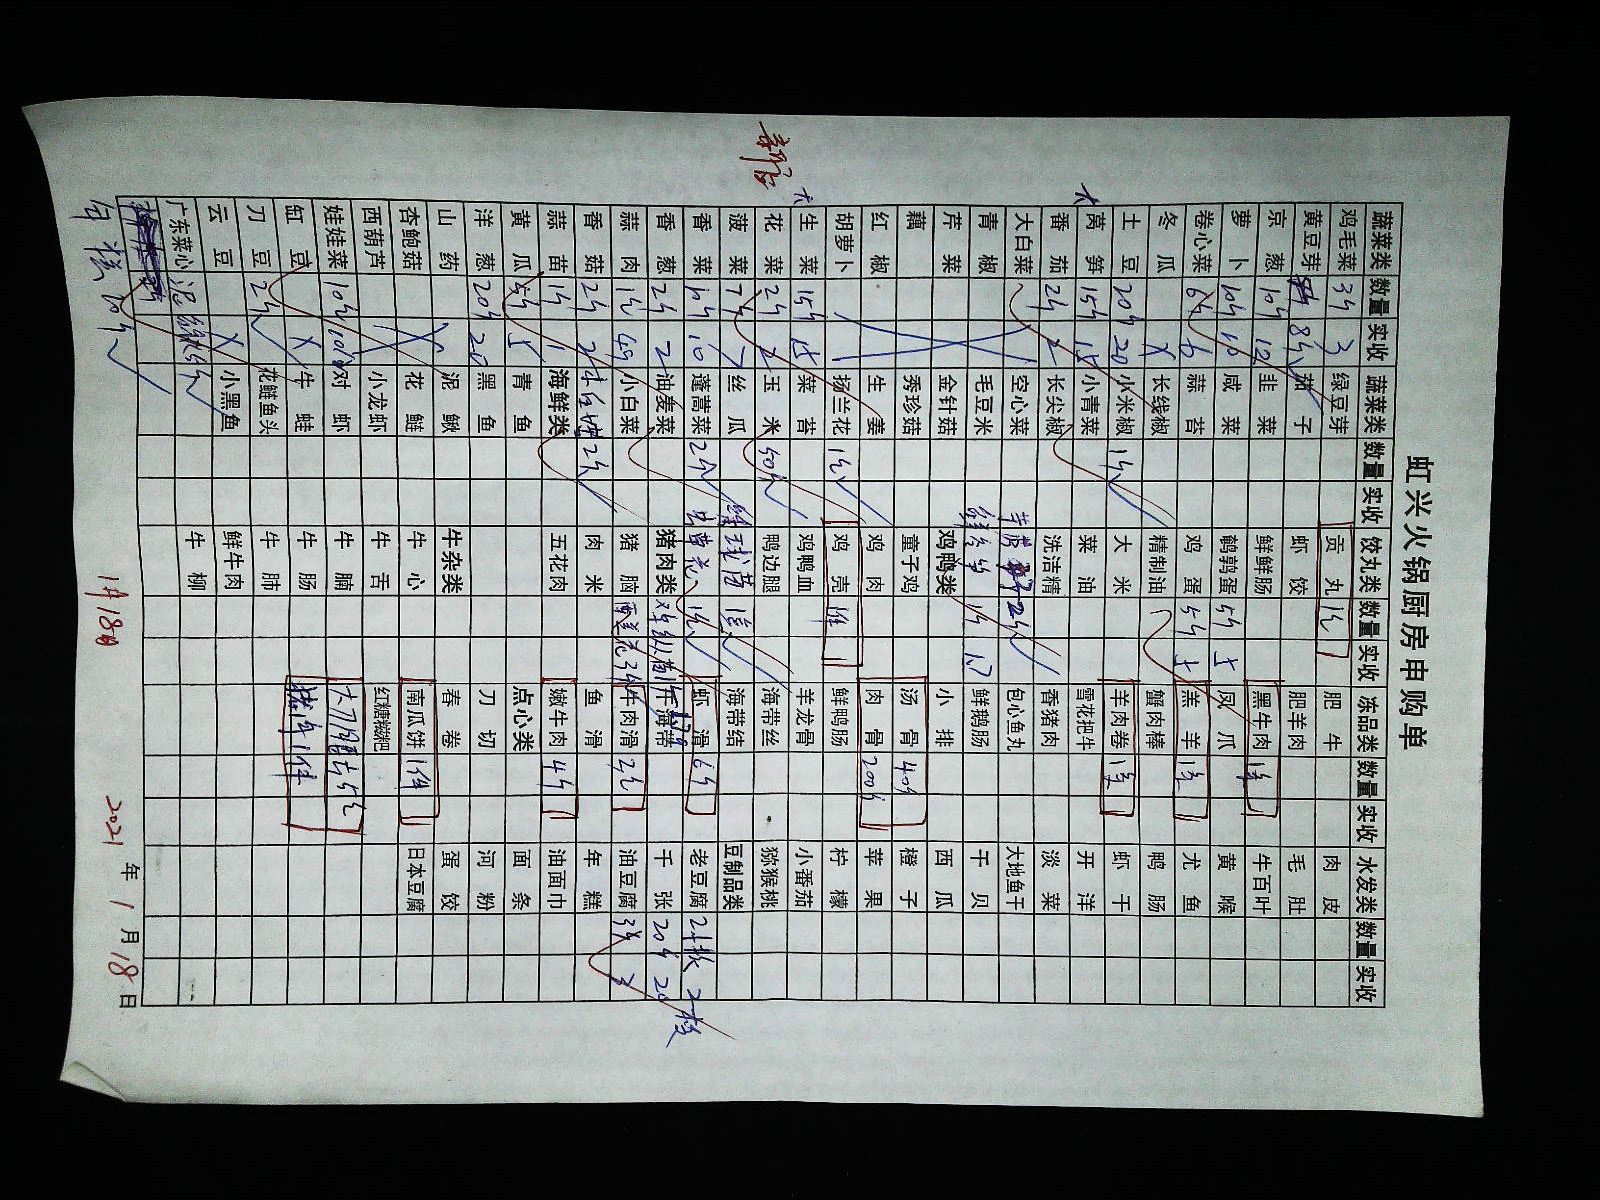 虹兴火锅厨房申购单
蔬菜类 数量 实收 蔬菜类 数量 实收 饺丸类 数量 实收 冻品类 数量 实收 水发类 数量 实收
鸡毛菜 3斤 3 绿豆芽 贡丸 1包 肥牛 肉皮
黄豆芽 8斤 茄子 虾饺 肥羊肉 毛肚
京葱 10斤 12 韭菜 鲜鲜肠 黑牛肉 1箱 牛百叶
萝卜 10斤 10 咸菜 鹌鹑蛋 5斤 5 凤爪 黄喉
卷心菜 6斤 6 蒜苔 鸡蛋 5斤 5 羔羊 1箱 尤鱼
冬瓜 长线椒 精制油 蟹肉棒 鸭肠
土豆 20斤 20 小米椒 1斤 大米 羊肉卷 1箱 虾干
莴笋 15斤 15 小青菜 菜油 雪花把牛 开洋
番茄 2斤 2 长尖椒 洗洁精 香猪肉 淡菜
大白菜 空心菜 2斤 包心鱼丸 大地鱼干
青椒 毛豆米 1斤 1.7 鲜鹅肠 干贝
芹菜 金针菇 鸡鸭类 小排 西瓜
藕 秀珍菇 童子鸡 汤骨 40斤 橙子
红椒 生姜 鸡肉 肉骨 200斤 苹果
胡萝卜 扬兰花 1包 鸡壳 1件 鲜鸭肠 柠檬
大 生菜 15斤 15 菜苔 鸡鸭血 羊龙骨 小番茄
花菜 2斤 2 玉米 50斤 鸭边腿 海带丝 猕猴桃
菠菜 7斤 7 丝瓜 1箱 海带结 豆制品类
香菜 10斤 10 蓬蒿菜 2斤 1包 虾滑 6斤 老豆腐 2板 2板
香葱 2斤 2 油麦菜 猪肉类 干海带 千张 20斤 20
蒜肉 小白菜 猪脑 牛肉滑 2包 油豆腐 3斤 3
香菇 2斤 2 2斤 肉米 鱼滑 年糕
蒜苗 1斤 1 海鲜类 五花肉 嫩牛肉 4斤 油面巾
黄瓜 5斤 5 青鱼 点心类 面条
洋葱 20斤 20 黑鱼 刀切 河粉
山药 泥鳅 牛杂类 春卷 蛋饺
杏鲍菇 花鲢 牛心 南瓜饼 1件 日本豆腐
西葫芦 小龙虾 牛舌 红糖糍粑
娃娃菜 10斤 10 对虾 牛腩
缸豆 牛蛙 牛肠 1件
刀豆 2斤 花鲢鱼头 牛肺
云豆 小黑鱼 鲜牛肉
广东菜心 牛柳
年糕 10斤
1月18日 2021年1月18日